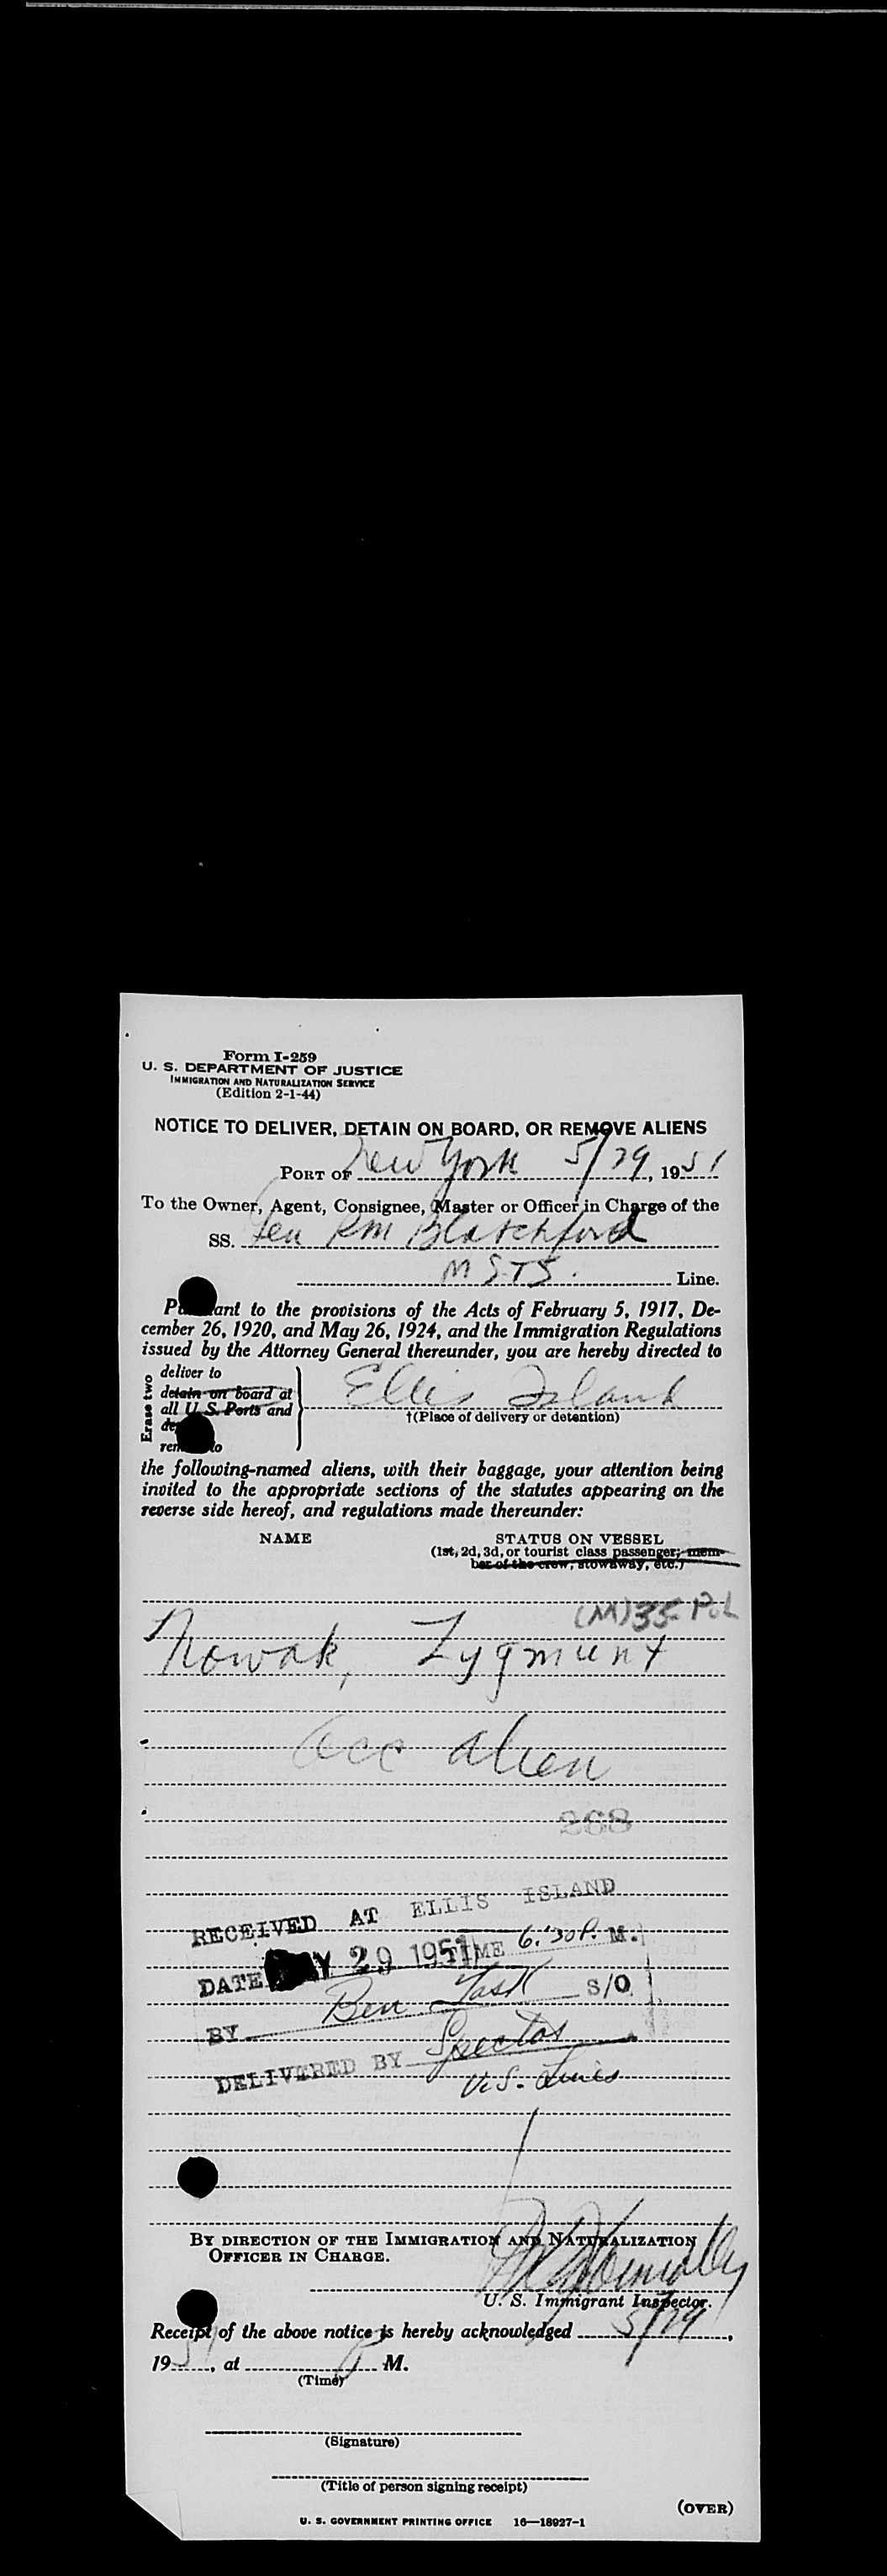 Form I-259
U. S. DEPARTMENT OF JUSTICE
IMMIGRATION AND NATURALIZATION SERVICE
(Edition 2-1-44)
NOTICE TO DELIVER, DETAIN ON BOARD, OR REMOVE ALIENS
PORT OF New York 5/29, 1951
To the Owner, Agent, Consignee, Master or Officer in Charge of the
SS. Gen RM Blatchford
MSTS. Line.
ant to the provisions of the Acts of February 5, 1917, De-
cember 26, 1920, and May 26, 1924, and the Immigration Regulations
issued by the Attorney General thereunder, you are hereby directed to
Erase two
deliver to
detain on board at
all U.S. Ports and
to
Ellis Island
†(Place of delivery or detention)
the following-named aliens, with their baggage, your attention being
invited to the appropriate sections of the statutes appearing on the
reverse side hereof, and regulations made thereunder:
NAME STATUS ON VESSEL
(1st, 2d, 3d, or tourist class passenger; mem-
ber of the crew, stowaway, etc.)
(M) 35 Pol
Nowak, Zygmunt
acc alien
268
RECEIVED AT ELLIS ISLAND
DATE MAY 29 1951 TIME 6:30 P. M.
BY Ben Task S/O
DELIVERED BY Spector
U.S. Lines
BY DIRECTION OF THE IMMIGRATION AND NATURALIZATION
OFFICER IN CHARGE.
U. S. Immigrant Inspector.
Receipt of the above notice is hereby acknowledged 5/29,
195, at P M.
(Time)
(Signature)
(Title of person signing receipt)
(OVER)
U. S. GOVERNMENT PRINTING OFFICE 16—18927-1